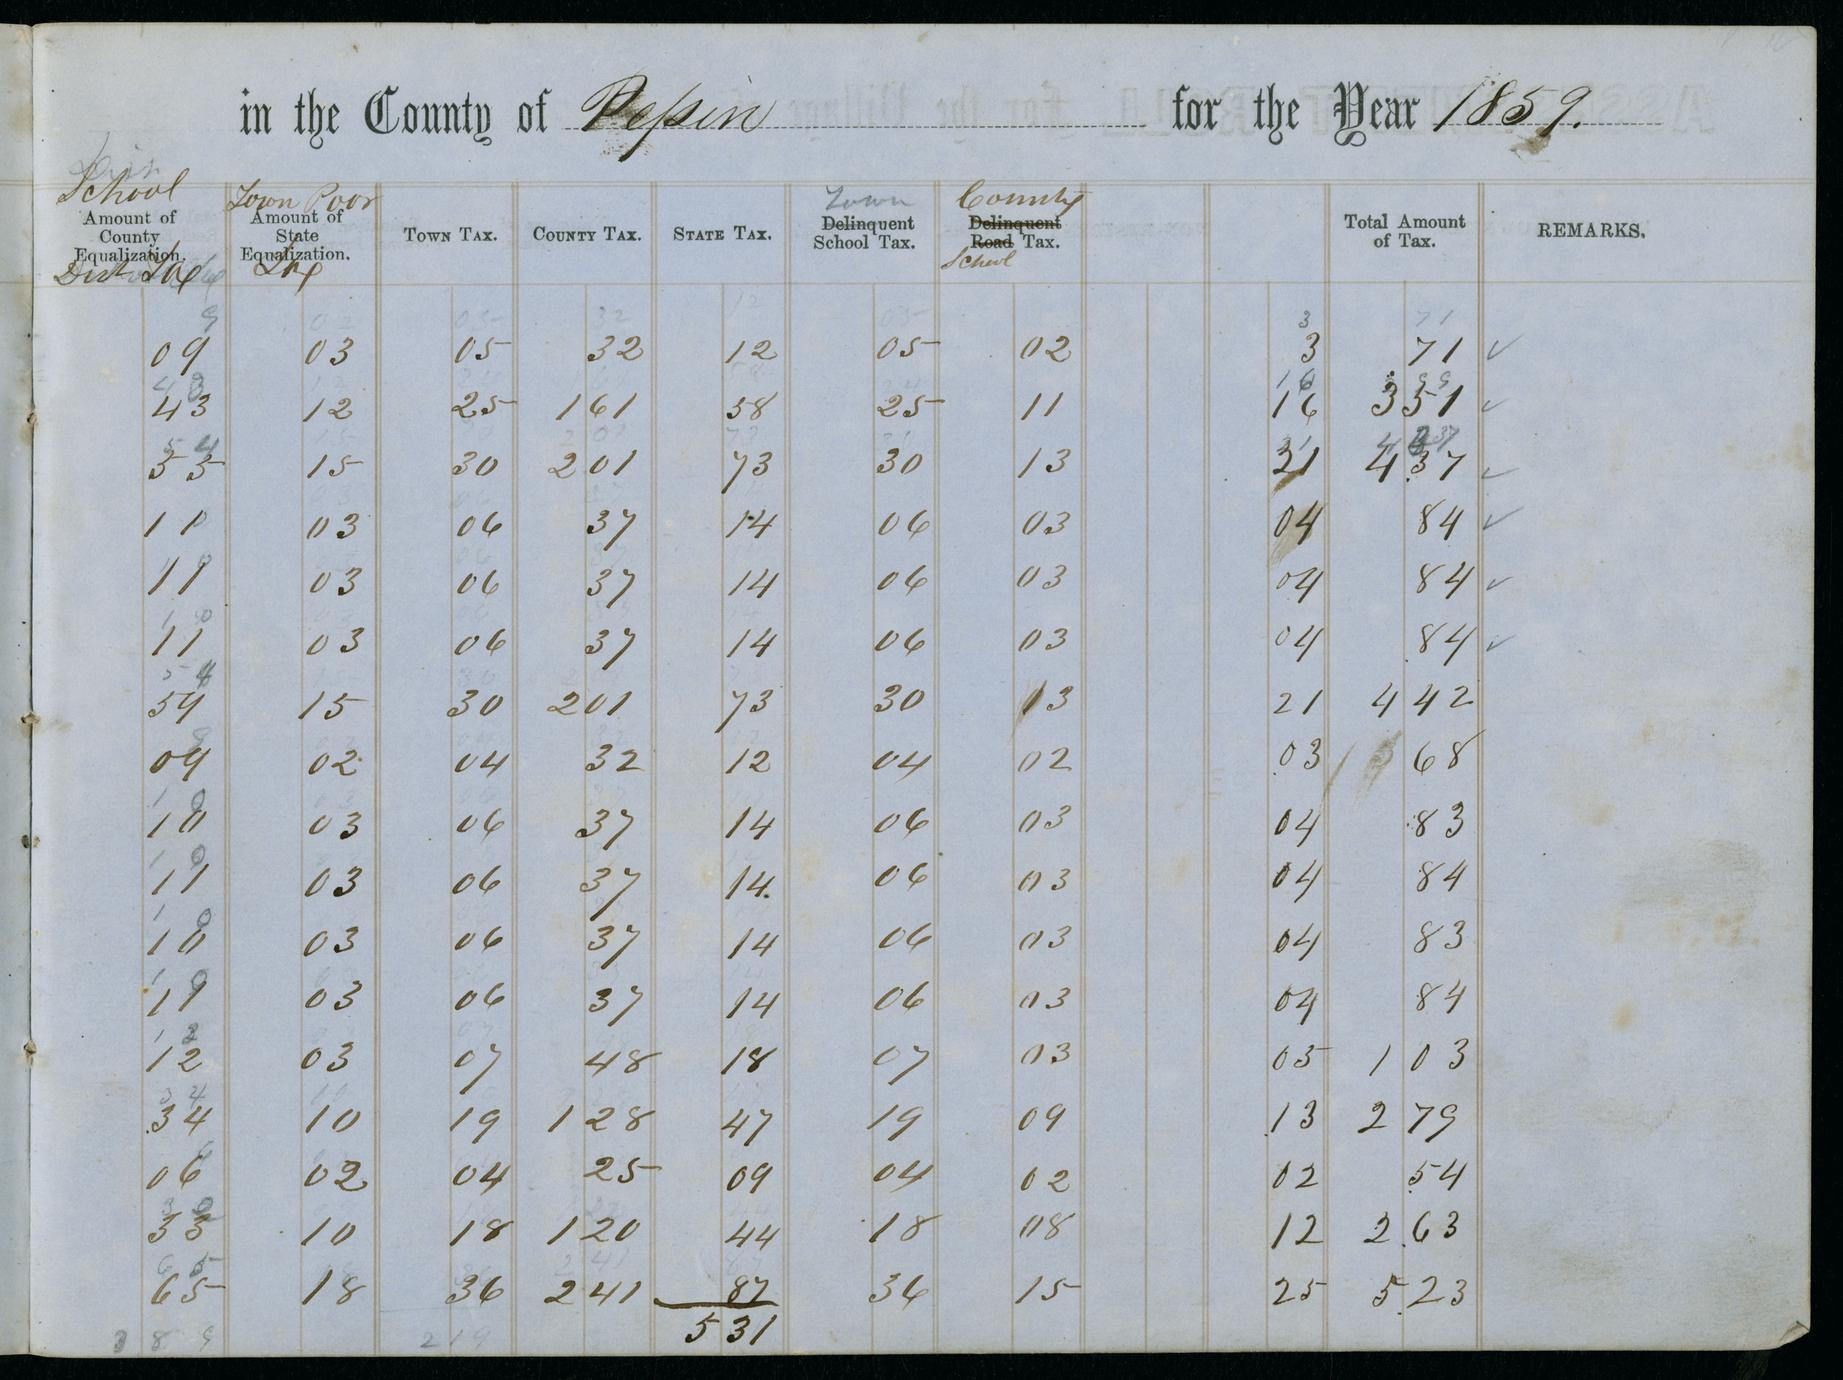 in the County of Pepin for the Year 1859.
School Town Poor Town County
Amount of County Equalization. Amount of State Equalization. Town Tax. County Tax. State Tax. Delinquent School Tax. Delinquent Road Tax. Total Amount of Tax. REMARKS.
Dist Tax Tax School
09 03 05 32 12 05 02 3 71 ✓
43 12 25 1 61 58 25 11 16 3 51 ✓
53 15 30 2 01 73 30 13 21 4 37 ✓
11 03 06 37 14 06 03 04 84 ✓
11 03 06 37 14 06 03 04 84 ✓
11 03 06 37 14 06 03 04 84 ✓
54 15 30 2 01 73 30 13 21 4 42
09 02 04 32 12 04 02 03 68
10 03 06 37 14 06 03 04 83
11 03 06 37 14 06 03 04 84
10 03 06 37 14 06 03 04 83
11 03 06 37 14 06 03 04 84
12 03 07 48 18 07 03 05 1 03
34 10 19 1 28 47 19 09 13 2 79
06 02 04 25 09 04 02 02 54
33 10 18 1 20 44 18 08 12 2 63
65 18 36 2 41 87 36 15 25 5 23
3 8 9 2 19 5 31